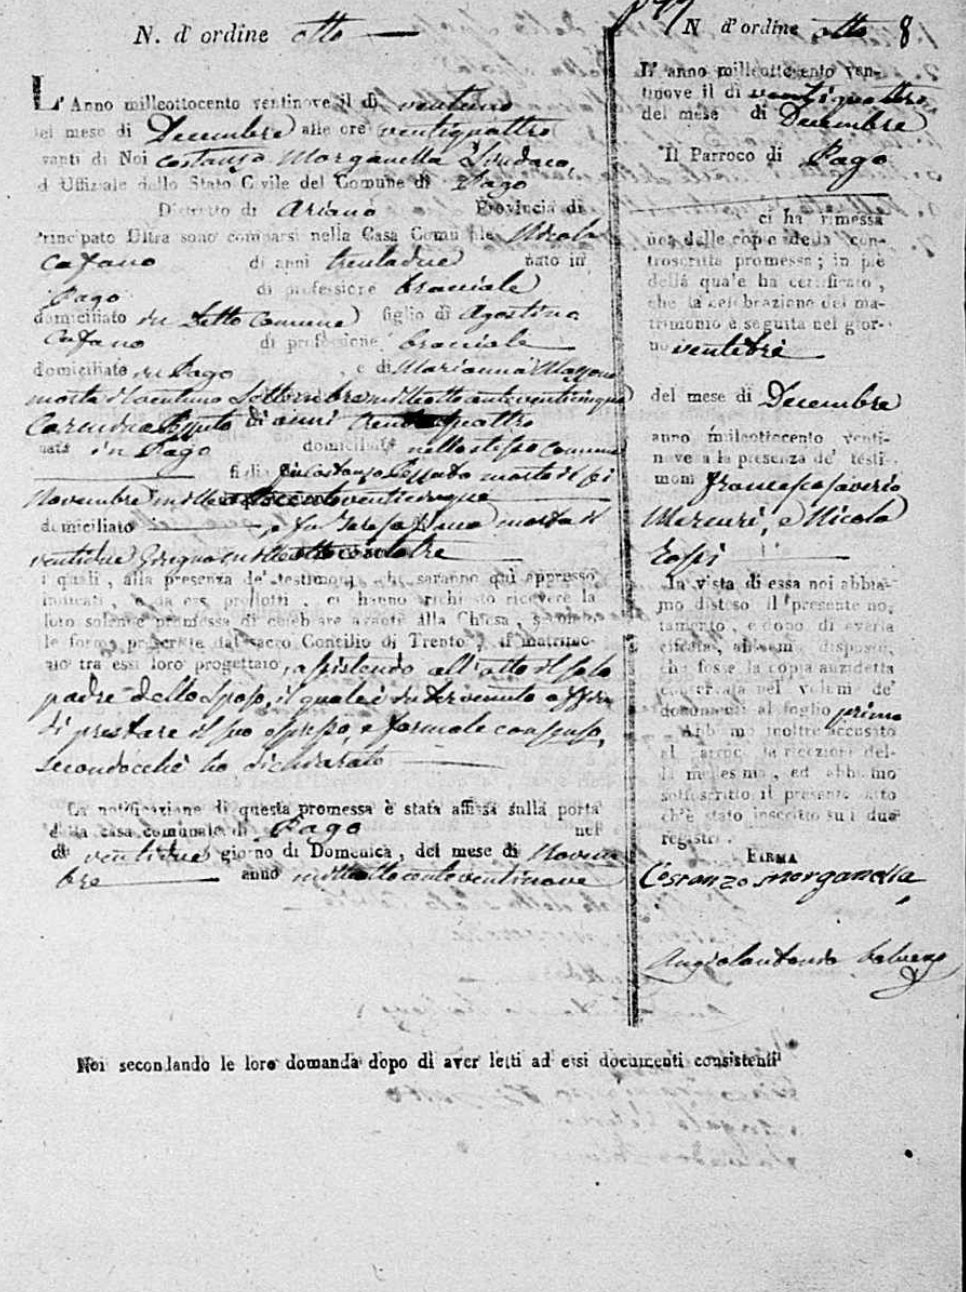 N. d'ordine otto
L'Anno milleottocento ventinove il dì ventuno
del mese di Decembre alle ore ventiquattro
vanti di Noi Costanzo Morganella Sindaco,
d Uffiziale dello Stato Civile del Comune di Pago
Distretto di Ariano Provincia di
Principato Ultra sono comparsi nella Casa Comunale Nicola
Cafano di anni trentadue nato in
Pago di professione bracciale
domiciliato in detto Comune figlio di Agostino
Cafano di professione bracciale
domiciliato in Pago, e di Marianna
morta il ventuno Settembre milleottocentoventicinque
di anni trentaquattro
nata in Pago domiciliata nello stesso comune
figlia fu Costanzo morto il sei
Novembre milleottocentoventicinque
domiciliato, e fu Teresa morta il
ventidue Giugno milleottocento
i quali, alla presenza de' testimoni, che saranno quì appresso
indicati, e da essi prodotti, ci hanno richiesto ricevere la
loro solenne promessa di celebrare avanti alla Chiesa, secondo
le forme prescritte dal sacro Concilio di Trento, il matrimo-
nio tra essi loro progettato, assistendo all'atto il solo
padre dello Sposo, il quale è intervenuto affin
di prestare il suo espresso, e formale consenso,
secondocchè ha dichiarato
La notificazione di questa promessa è stata affissa sulla porta
della casa comunale di Pago nel
dì ventidue giorno di Domenica, del mese di Novem
bre anno milleottocentoventinove
Noi secondando le loro domanda dopo di aver letti ad essi documenti consistenti
N d'ordine otto 8
L' anno milleottocento ven-
tinove il dì ventiquattro
del mese di Decembre
Il Parroco di Pago
ci ha rimessa
una delle copie della con-
troscritta promessa; in piè
della quale ha certificato,
che la celebrazione del ma-
trimonio è seguita nel gior-
no ventitrè
del mese di Decembre
anno milleottocento venti-
nove a la presenza de' testi-
moni Francescosaverio
Mercuri, e Nicola
Zoppi
In vista di essa noi abbia-
mo disteso il presente no-
tamento, e dopo di averla
cifrata, abbiam disposto,
che fosse la copia anzidetta
conservata nel volume de'
documenti al foglio primo
Abbiamo inoltre accusato
al parroco la ricezione del-
la medesima, ed abbiamo
sottoscritto il presente atto
ch'è stato inscritto sui due
registri.
FIRMA
Costanzo Morganella
Angiolantonio